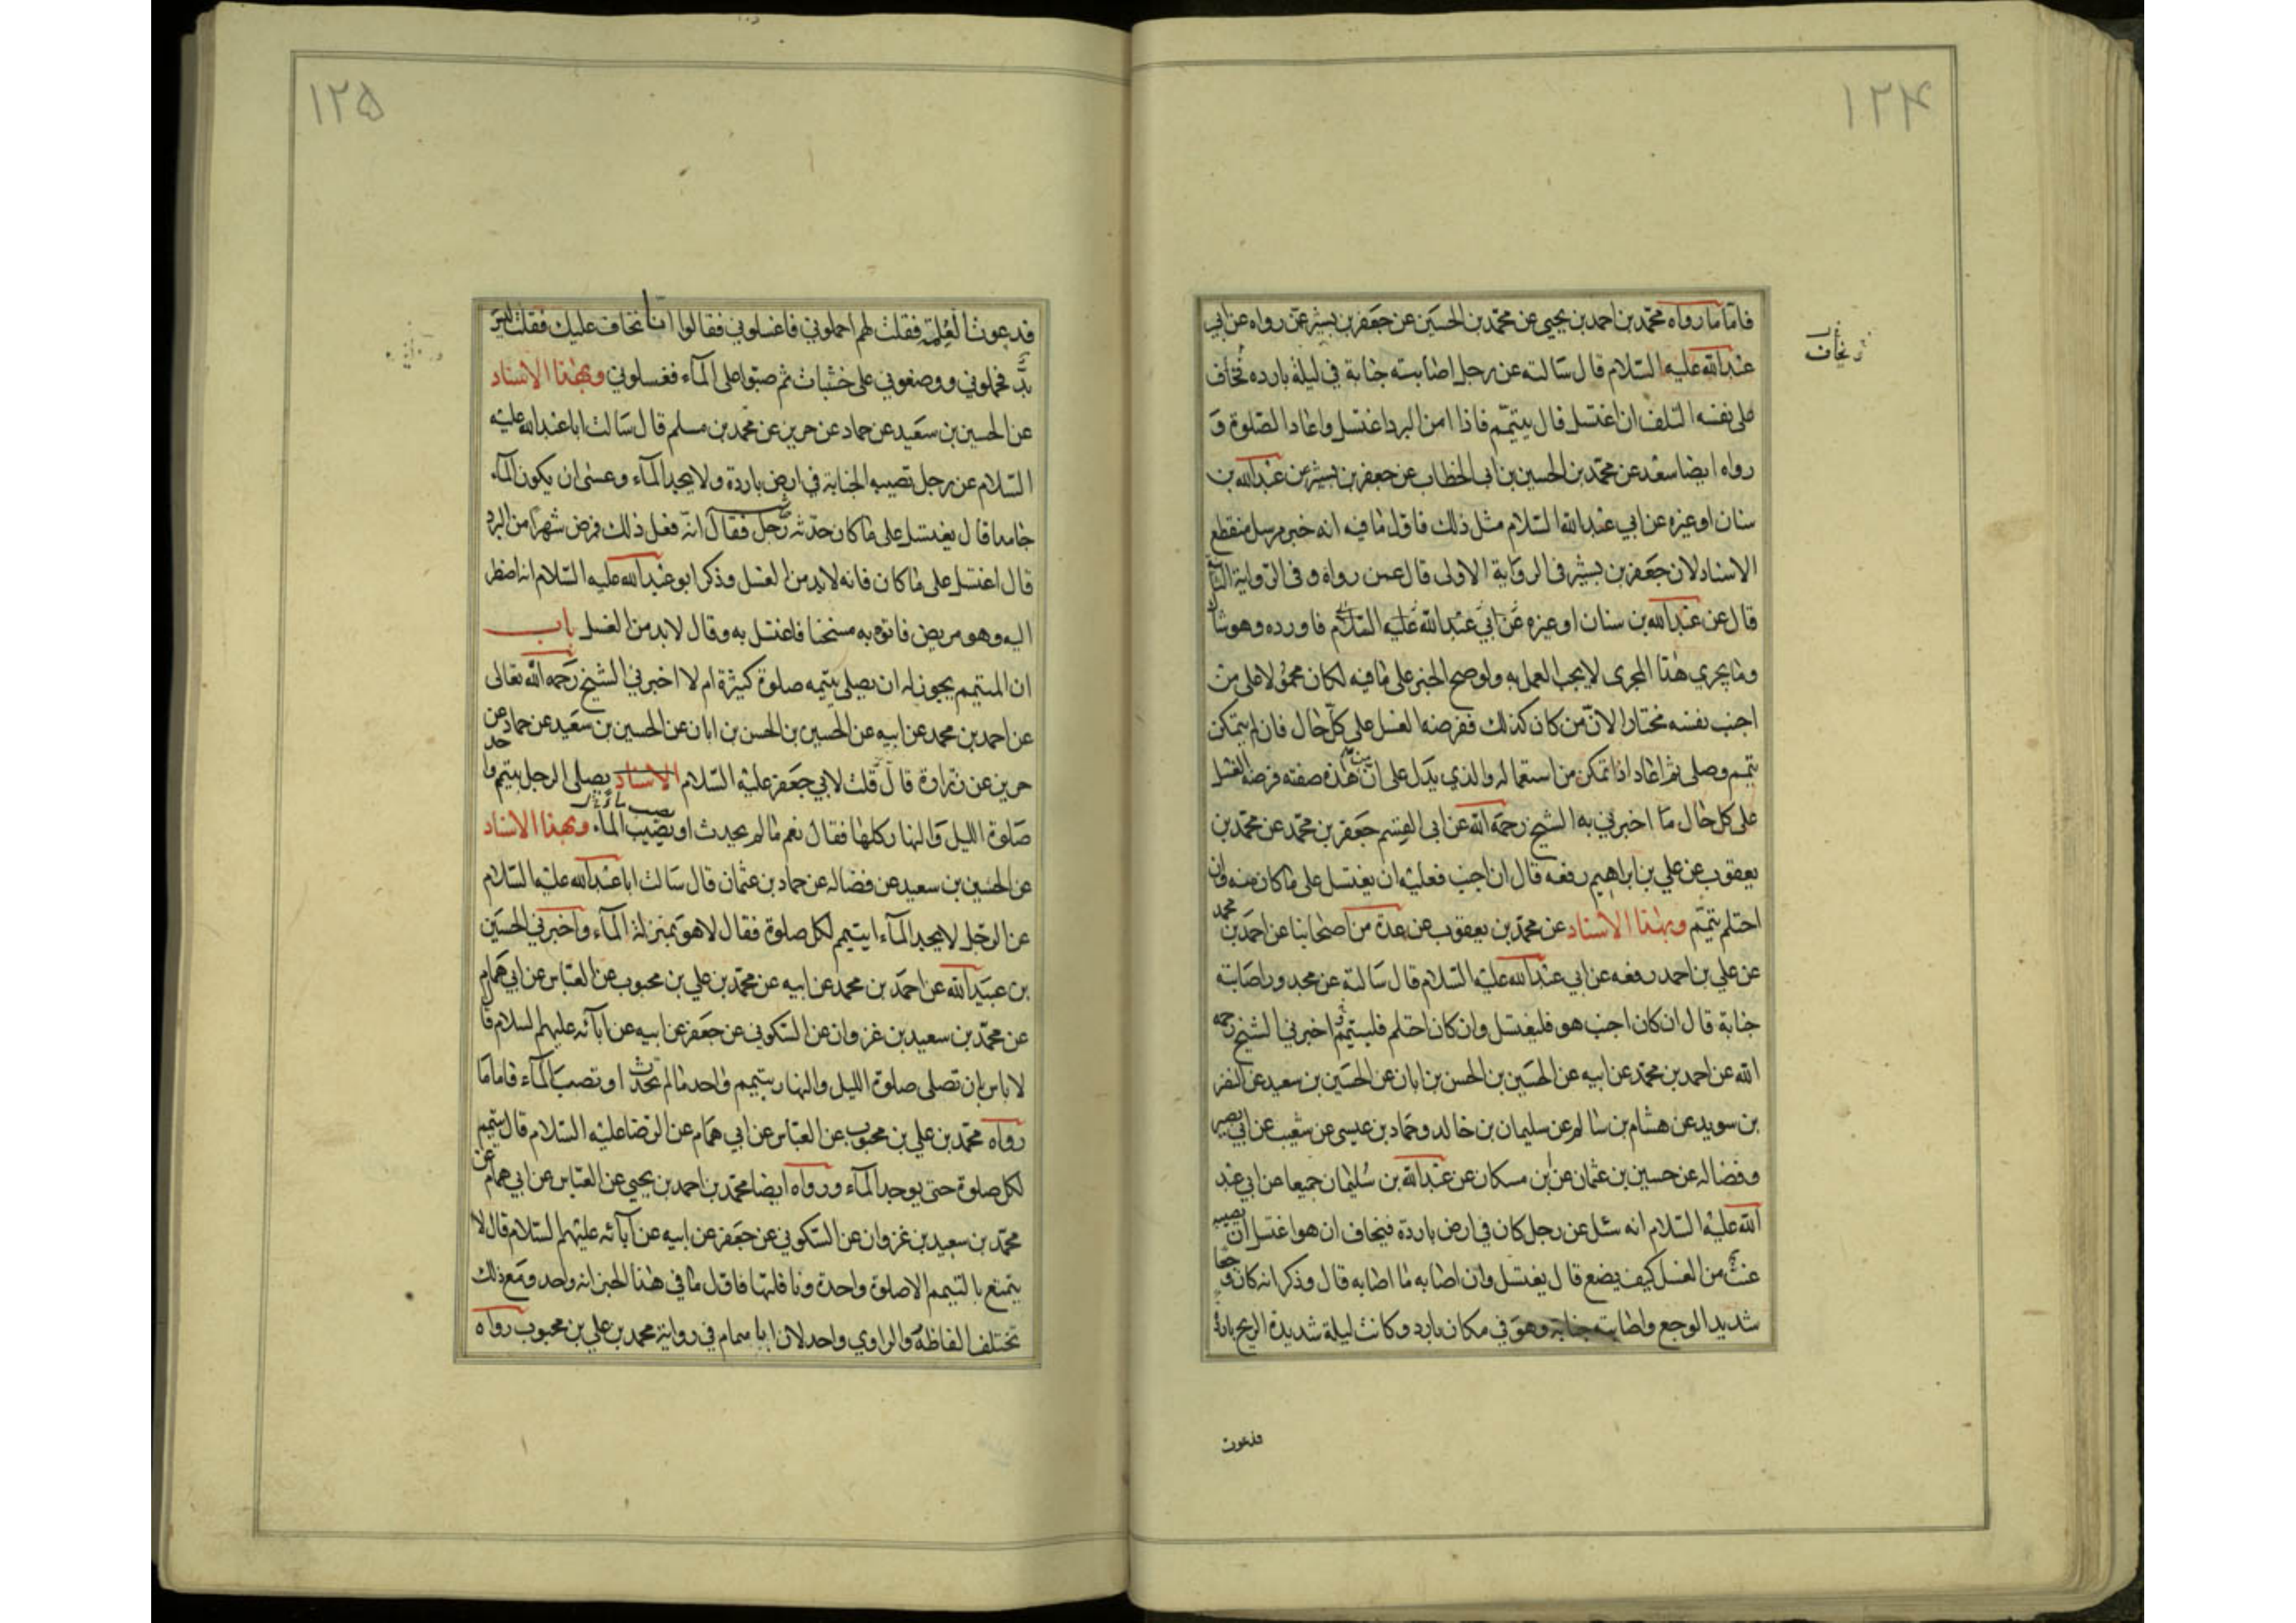 ١٢۴
فاما ما رواه محمد بن احمد بن يحيى عن محمد بن الحسين عن جعفر بن بشير عمن رواه عن ابي
عبدالله عليه السلام قال سالته عن رجل اصابته جنابة في ليلة بارده تخاف
يخاف
على نفسه التلف ان اغتسل قال يتيمم فاذا امن البرد اغتسل واعاد الصلوة و
رواه ايضا سعد عن محمد بن الحسين بن ابى الخطاب عن جعفر بن بشير عن عبدالله بن
سنان او غيره عن ابي عبدالله السلام مثل ذلك فاول ما فيه انه خبر مرسل منقطع
الاسناد لان جعفر بن بشير في الرواية الاولى قال عمن رواه وفي الرواية الثانية
قال عن عبدالله بن سنان او غيره عن ابي عبدالله عليه السلام فاورده وهو شاك
وما يجري هذا المجرى لا يجب العمل به ولو صح الخبر على ما فيه لكان محمولا على من
اجنب نفسه مختارا لان من كان كذلك ففرضه الغسل على كل حال فان لم يتمكن
تيمم وصلى ثم اعاد اذا تمكن من استعماله والذي يدل على ان من هذه صفته فرضه الغسل
على كل حال ما اخبرني به الشيخ رحمه الله عن ابى القسم جعفر بن محمد عن محمد بن
يعقوب عن علي بن ابراهيم رفعه قال ان اجنب فعليه ان يغتسل على ما كان منه وان
احتلم تيمم وبهذا الاسناد عن محمد بن يعقوب عن عدة من اصحابنا عن احمد بن محمد
عن علي بن احمد رفعه عن ابي عبدالله عليه السلام قال سالته عن مجدور اصابته
جنابة قال ان كان اجنب هو فليغتسل وان كان احتلم فليتيمم اخبرني الشيخ رحمه
الله عن احمد بن محمد عن ابيه عن الحسين بن الحسن بن ابان عن الحسين بن سعيد عن النضر
بن سويد عن هشام بن سالم عن سليمان بن خالد وحماد بن عيسى عن شعيب عن ابي بصير
وفضاله عن حسين بن عثمان عن بن مسكان عن عبدالله بن سليمان جميعا عن ابي عبد
الله عليه السلام انه سئل عن رجل كان في ارض باردة فيخاف ان هو اغتسل ان يصيبه
عنت من الغسل كيف يصنع قال يغتسل وان اصابه ما اصابه قال وذكر انه كان وجعا
شديد الوجع واصابته جنابة وهو في مكان بارد وكانت ليلة شديدة الريح باردة
فدعوت
١٢۵
فدعوت الغلمة فقلت لهم احملوني فاغسلوني فقالوا انا نخاف عليك فقلت ليس
بد فحملوني ووضعوني على خشبات ثم صبوا على المآء فغسلوني وبهذا الاسناد
عن الحسين بن سعيد عن حماد عن حريز عن محمد بن مسلم قال سالت ابا عبدالله عليه
السلام عن رجل تصيبه الجنابة في ارض باردة ولا يجد المآء وعسى ان يكون المآء
جامدا قال يغتسل على ما كان حدثه رجل فقال انه فعل ذلك فمرض شهرا من البرد
قال اغتسل على ما كان فانه لابد من الغسل وذكر ابو عبدالله عليه السلام انه اضطر
اليه وهو مريض فاتوه به مسخنا فاغتسل به وقال لابد من الغسل باب
ان المتيمم يجوز له ان يصلى بتيممه صلوة كثيرة ام لا اخبرني الشيخ رحمه الله تعالى
عن احمد بن محمد عن ابيه عن الحسين بن الحسن بن ابان عن الحسين بن سعيد عن حماد عن
حريز عن زرارة قال قلت لابي جعفر عليه السلام الاسناد يصلى الرجل بتيمم واحد
صلوة الليل والنهار كلها فقال نعم ما لم يحدث او يصيب المآء وبهذا الاسناد
عن الحسين بن سعيد عن فضاله عن حماد بن عثمان قال سالت ابا عبدالله عليه السلام
عن الرجل لا يجد المآء ايتيمم لكل صلوة فقال لا هو بمنزلة المآء واخبرني الحسين
بن عبيدالله عن احمد بن محمد عن ابيه عن محمد بن علي بن محبوب عن العباس عن ابي همام
عن محمد بن سعيد بن غزوان عن السكوني عن جعفر عن ابيه عن آبآئه عليهم السلام قال
لا باس بان تصلى صلوة الليل والنهار بتيمم واحد ما لم تحدث او تصب المآء فاما ما
رواه محمد بن علي بن محبوب عن العباس عن ابي همام عن الرضا عليه السلام قال يتيمم
لكل صلوة حتى يوجد المآء ورواه ايضا محمد بن احمد بن يحيى عن العباس عن ابي همام عن
محمد بن سعيد بن غزوان عن السكوني عن جعفر عن ابيه عن آبآئه عليهم السلام قال لا
يتمتع بالتيمم الا صلوة واحدة ونافلتها فاول ما في هذا الخبر انه واحد ومع ذلك
تختلف الفاظه والراوي واحد لان ابا همام في رواية محمد بن علي بن محبوب رواه